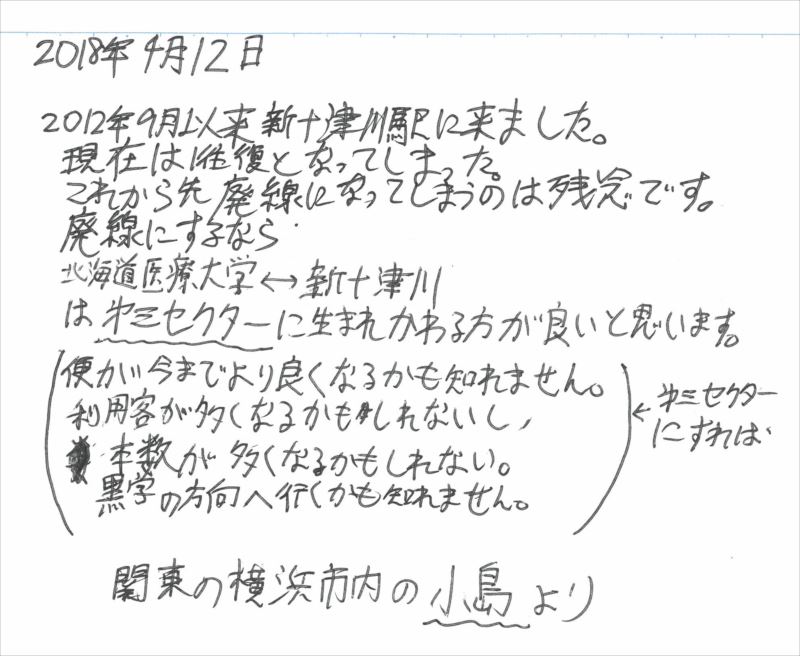 2018年4月12日
2012年9月以来新十津川駅に来ました。
現在は1往復となってしまった。
これから先廃線になってしまうのは残念です。
廃線にするなら
北海道医療大学↔新十津川
は㐧三セクターに生まれかわる方が良いと思います。
(便が今までより良くなるかも知れません。
利用客が多くなるかもしれないし、
本数が多くなるかもしれない。
黒字の方向へ行くかも知れません。)
←㐧三セクター
にすれば
関東の横浜市内の小島より